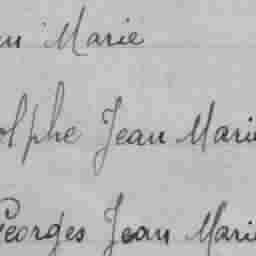 Marie
olphe Jean Marie
Georges Jean Marie